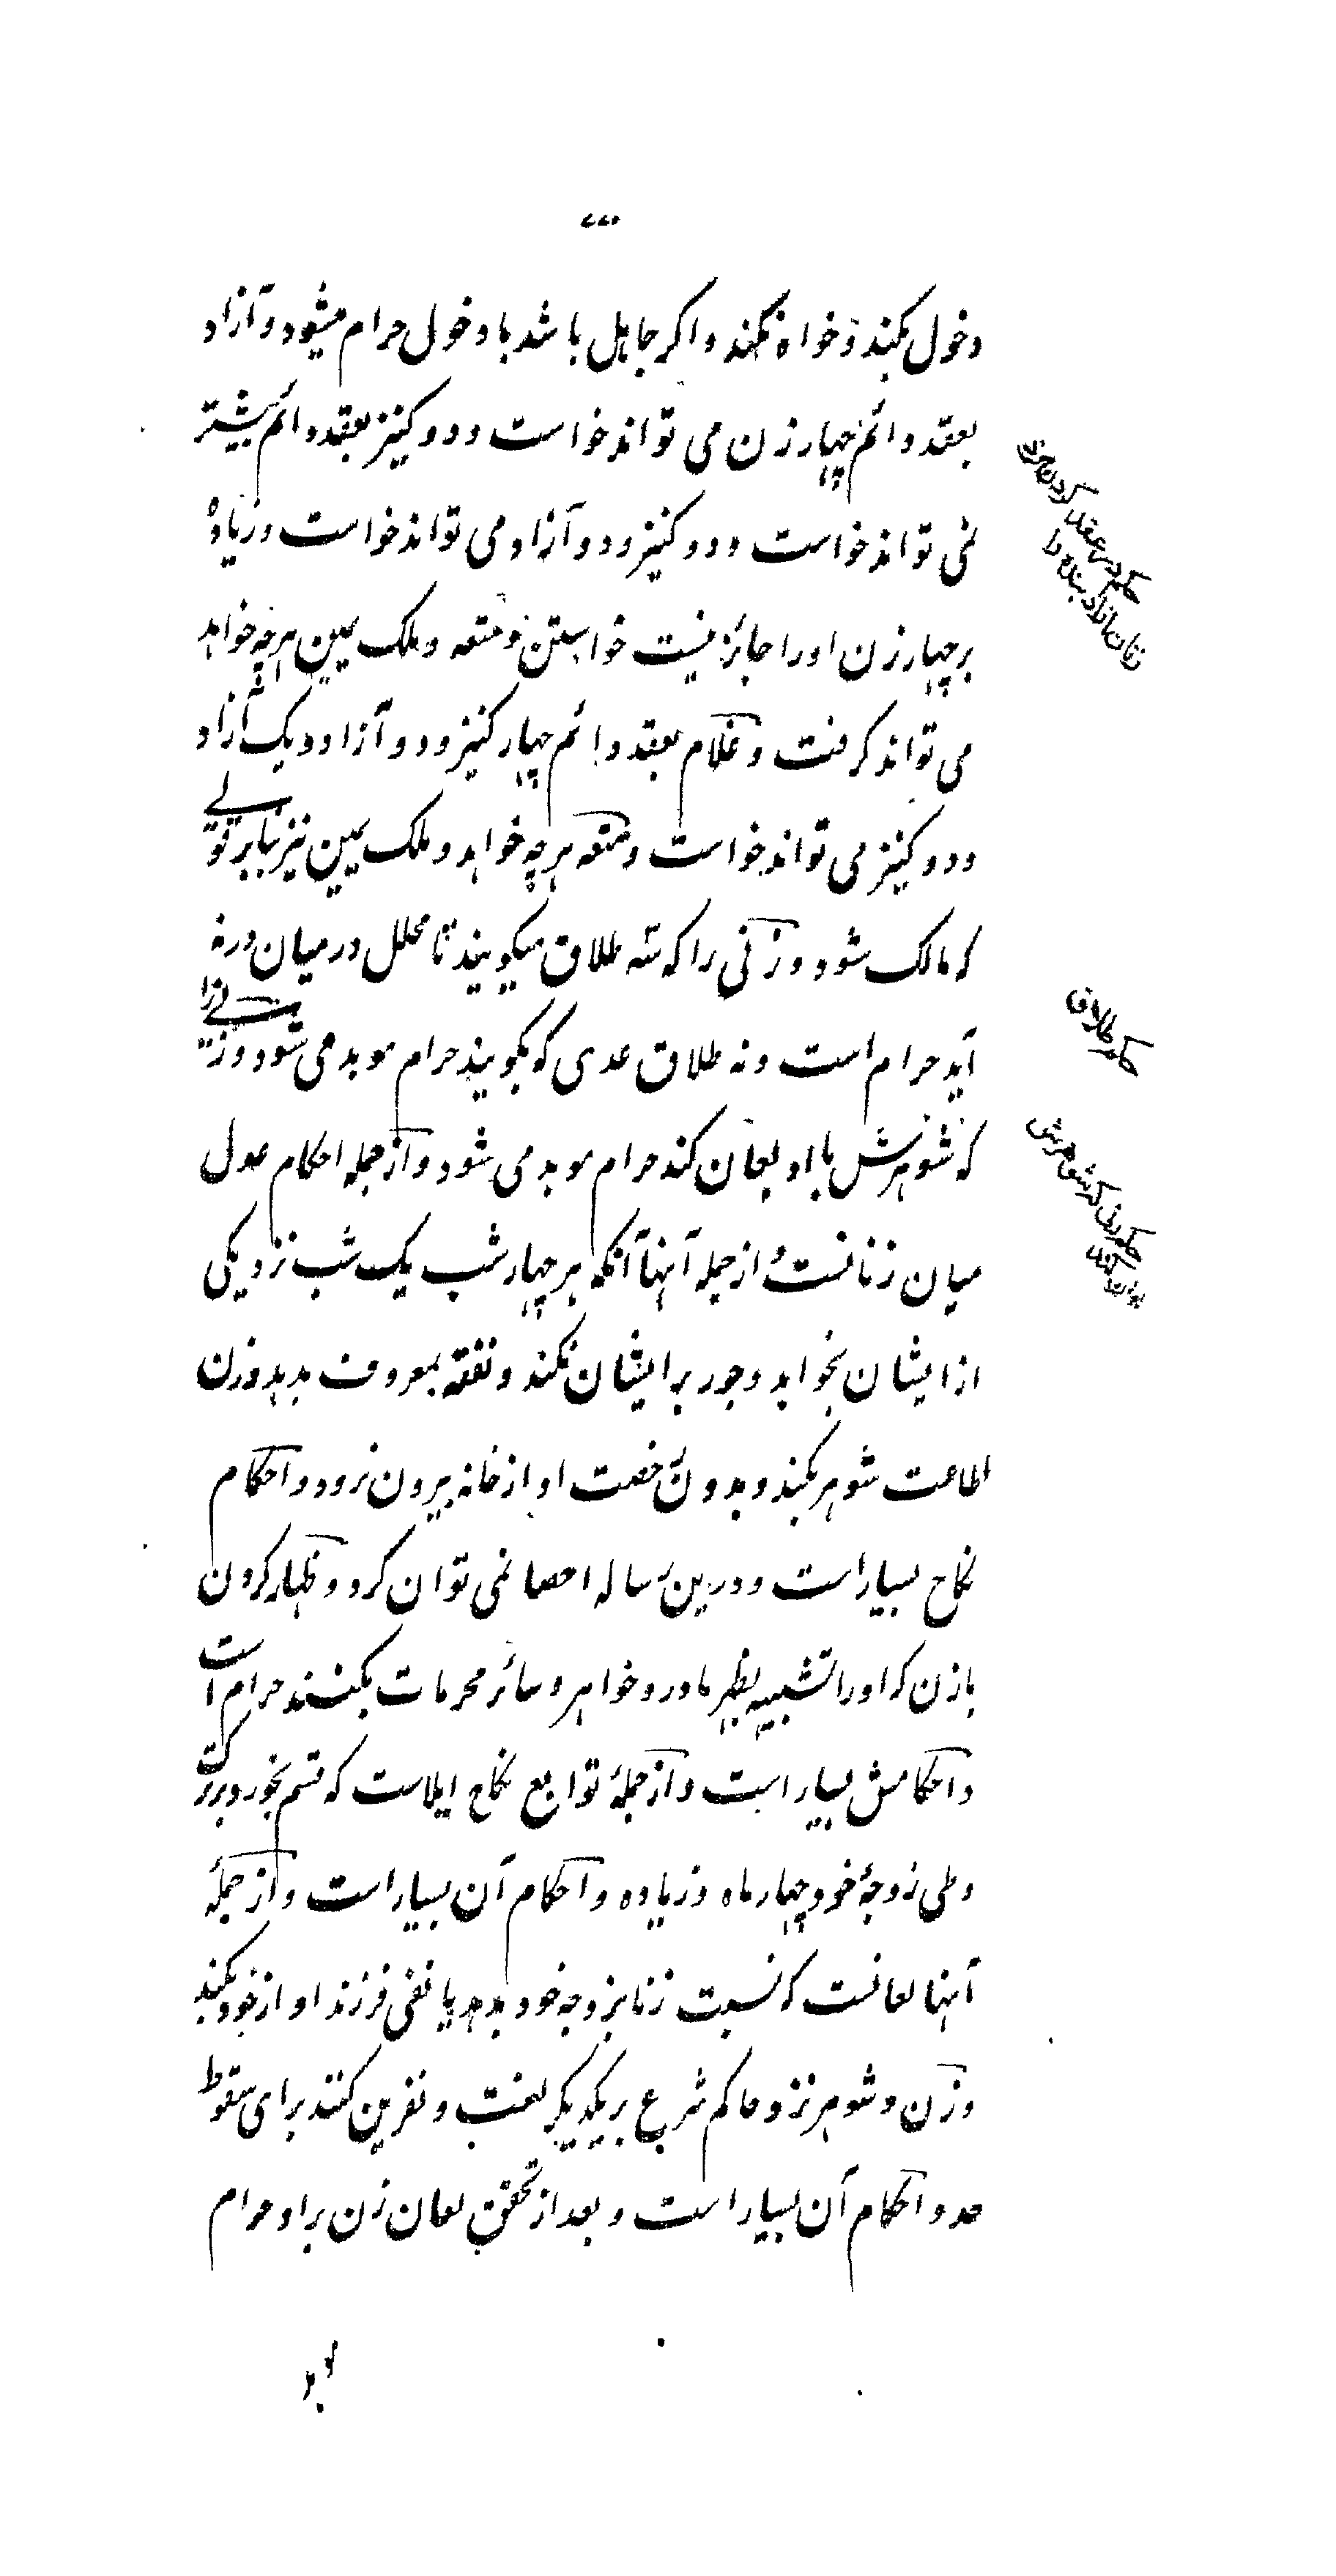 دخول بکند و خواه نکند و اگر جاهل باشد با دخول حرام میشود و آزاد
بعقد دائم چهار زن می تواند خواست و دو کنیز بعقد دائم بیشتر
نمی تواند خواست و دو کنیز و دو آزاد می تواند خواست و زیاده
بر چهار زن او را جائز نیست خواستن و متعه و ملک یمین هر چه خواهد
می تواند گرفت و غلام بعقد دائم چهار کنیز و دو آزاد و یک آزاد
و دو کنیز می تواند خواست و متعه هر چه خواهد و ملک یمین نیز بنابر قولی
که مالک شود و زنی را که سه طلاق میگویند تا محلل در میان در نه
آید حرام است و نه طلاق عدی که بگویند حرام موبد می شود و زنی را
که شوهرش با او لعان کند حرام موبد می شود و از جمله احکام عدل
میان زنانست و از جمله آنها آنکه هر چهار شب یک شب نزد یکی
از ایشان بخوابد و جور بر ایشان نکند و نفقه بمعروف بدهد و زن
اطاعت شوهر بکند و بدون رخصت او از خانه بیرون نرود و احکام
نکاح بسیار است و درین رساله احصا نمی توان کرد و ظهار کردن
با زن که او را تشبیه بظهر مادر و خواهر و سائر محرمات بکنند حرام است
و احکامش بسیار است و از جملهٔ توابع نکاح ایلاست که قسم بخورد بر ترک
وطی زوجهٔ خود چهار ماه و زیاده و احکام آن بسیار است و از جملهٔ
آنها لعانست که نسبت زنا بزوجه خود بدهد یا نفی فرزند او از خود بکند
و زن و شوهر نزد حاکم شرع بر یکدیگر لعنت و نفرین کنند برای سقوط
حد و احکام آن بسیار است و بعد از تحقق لعان زن بر او حرام
حکم در عقد کردن مرد
زنان آزاد بنده را
حکم طلاق
حکم زنی که شوهرش
لعان کند